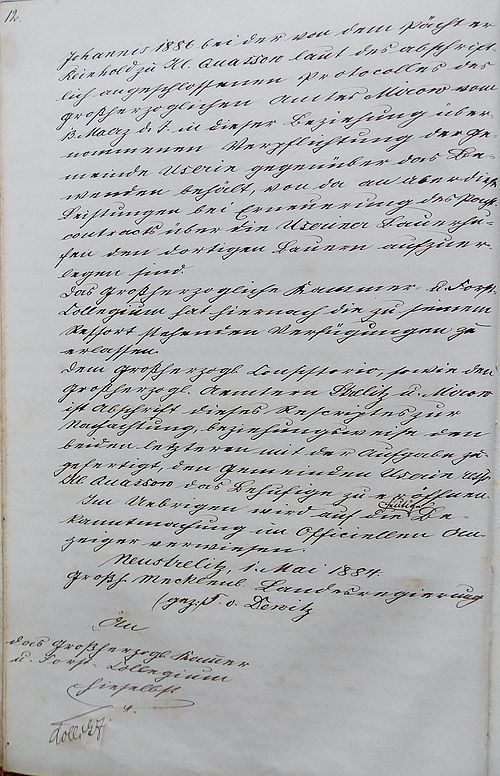 12.
Johannis 1886 bei der von dem Pächter
Reinhold zu Kl. Quasson laut des abschrift-
lich angeschlossenen Protocolles des
Großherzoglichen Amtes Mirow vom
13. Maerz d. J. in dieser Beziehung über-
nommenen Verpflichtung der Ge-
meinde Userin gegenüber das Be-
wenden behält, von da an aber die
Leistungen bei Erneuerung des Pacht-
contracts über die Useriner Bauerhu-
fen den dortigen Bauern aufzuer-
legen sind.
Das Großherzogliche Kammer- u. Forst-
Collegium hat hiernach die zu seinem
Ressort stehenden Verfügungen zu
erlassen.
Dem Großherzogl. Consistorio, sowie den
Großherzogl. Aemtern Strelitz u. Mirow
ist Abschrift dieses Rescriptes zur
Nachachtung, beziehungsweise den
beiden letzteren mit der Aufgabe zu-
gefertigt, den Gemeinden Userin
Kl. Quassow das Behufige zu eröffnen.
Im Uebrigen wird auf die Be-
kanntmachung im Officiellen An-
zeiger verwiesen.
Neustrelitz, 1. Mai 1884.
Großh. Mecklenb. Landesregierung
(gez.) F. v. Dewitz
An
das Großherzogl. Kammer
u. Forst-Collegium
hieselbst